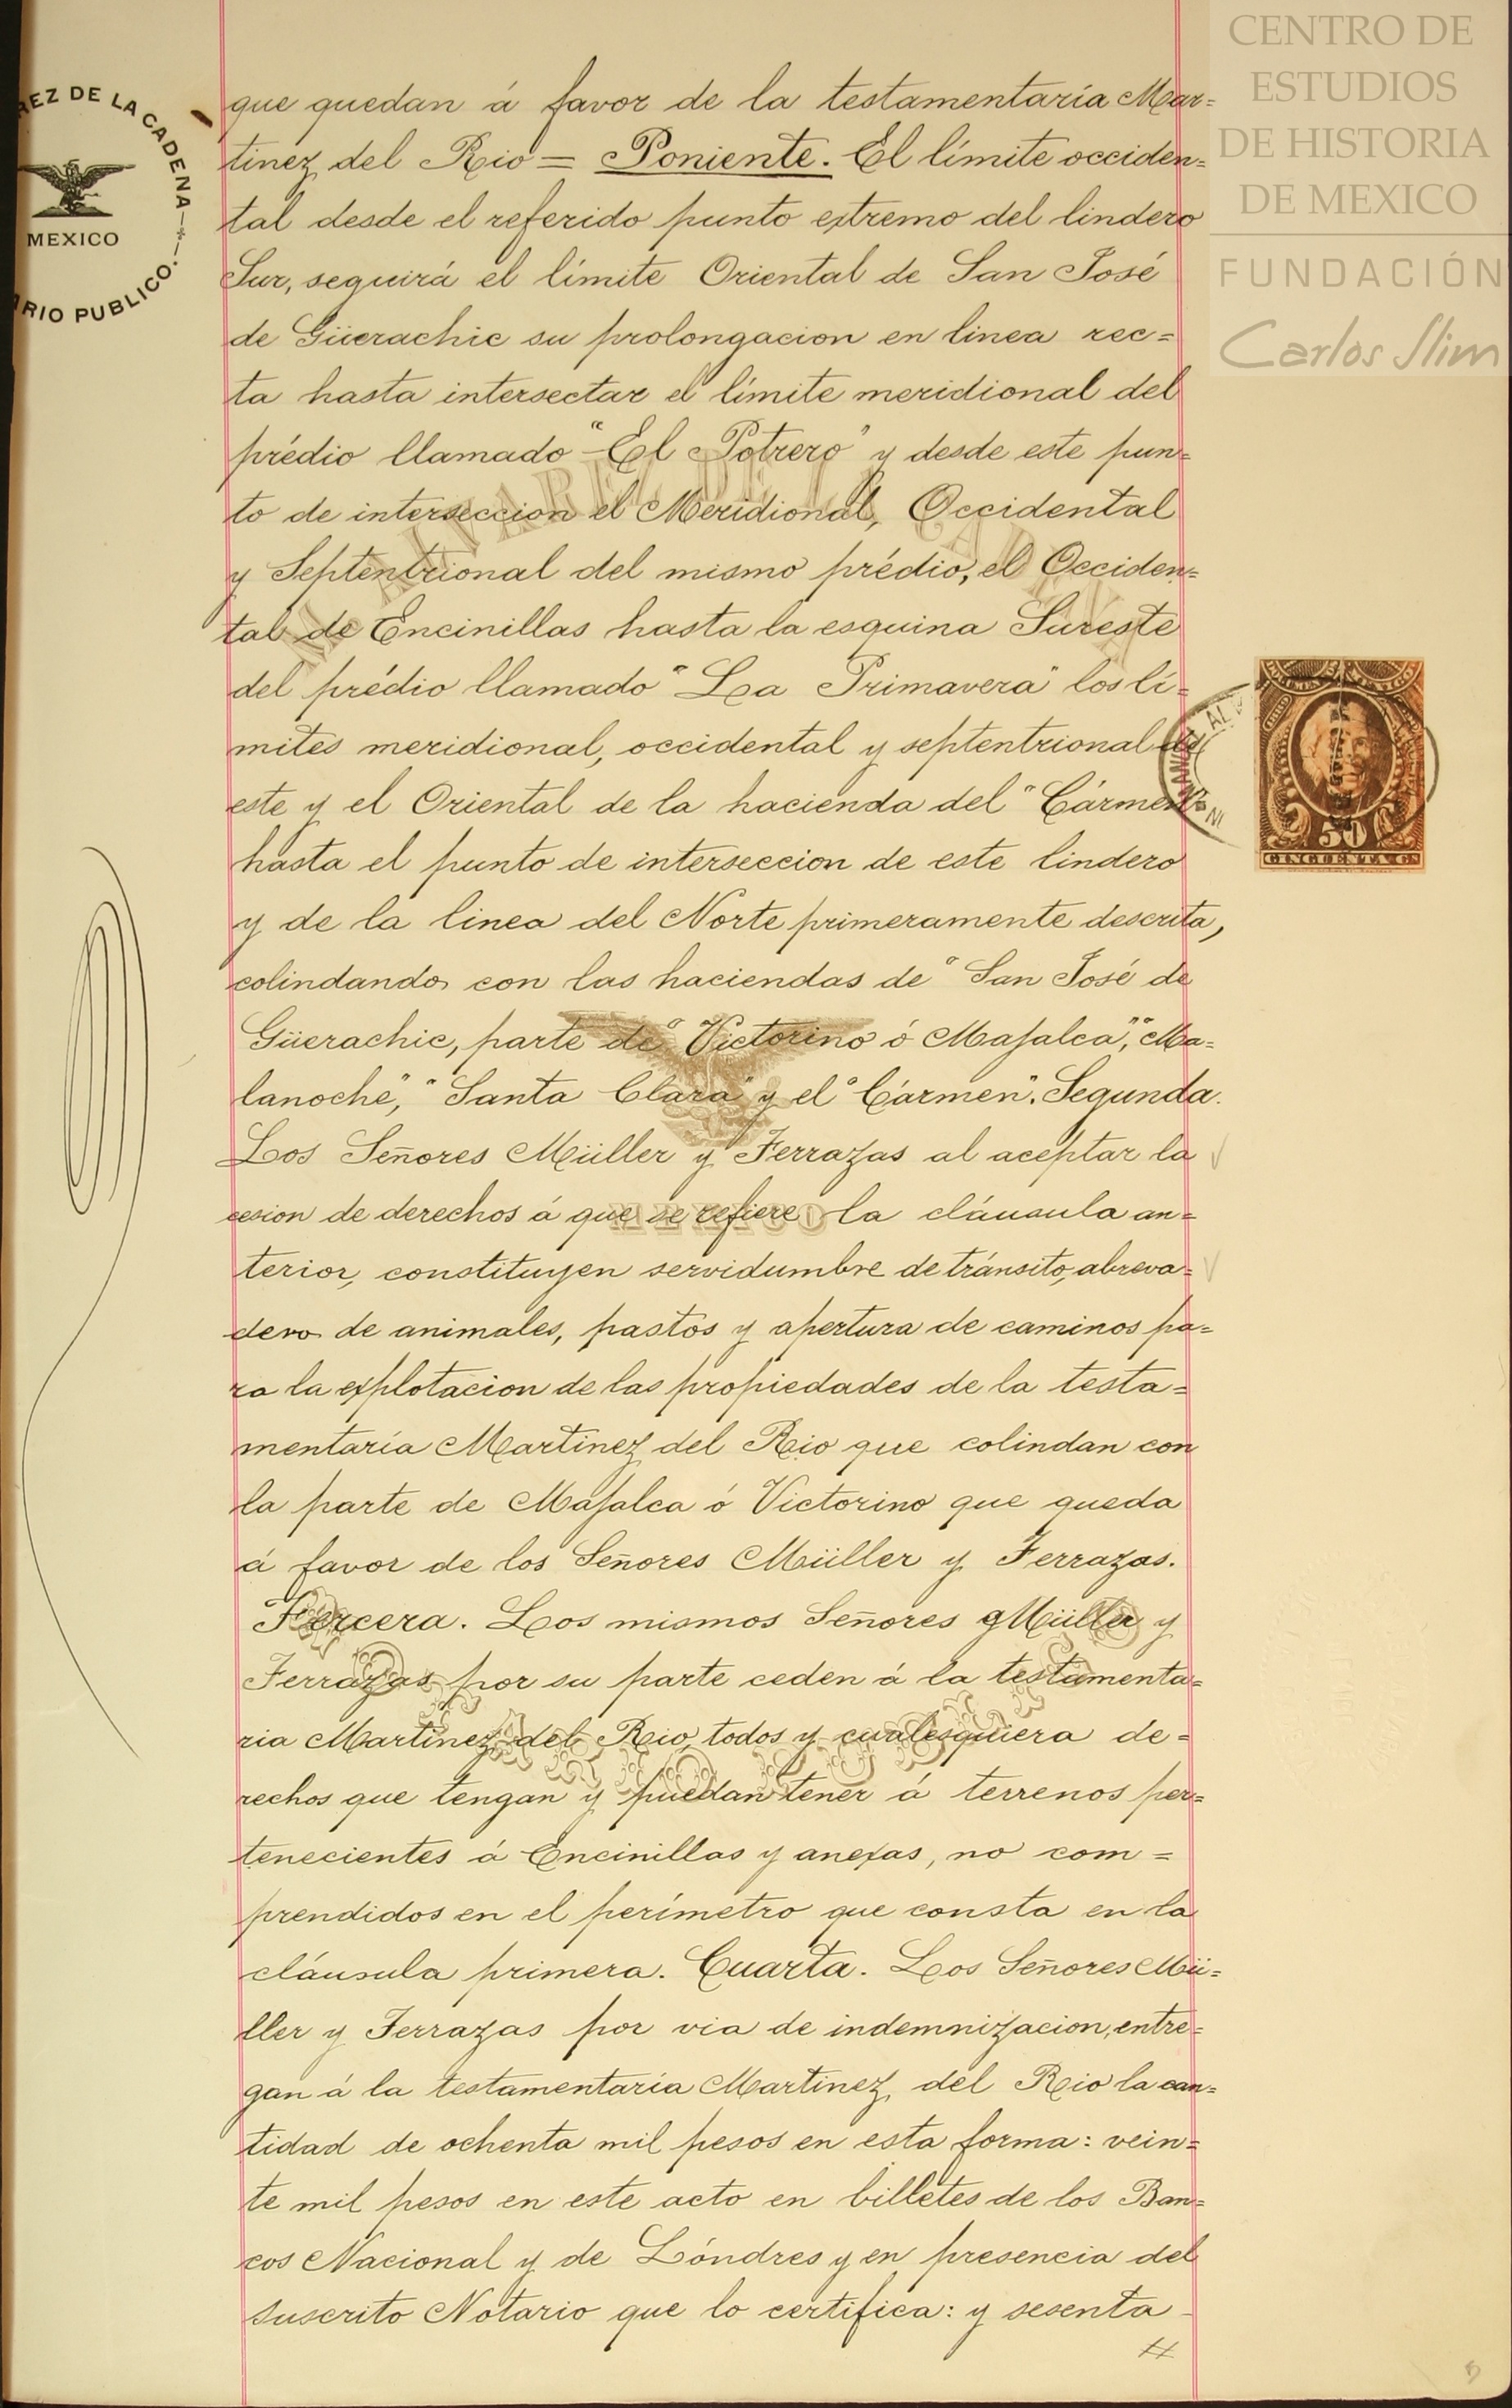 CENTRO DE
ESTUDIOS
DE HISTORIA
DE MEXICO
FUNDACIÓN
Carlos Slim
EZ DE LA CADENA
MEXICO
RIO PUBLICO.
que quedan á favor de la testamentaría Mar=
tinez del Rio = Poniente. El límite occiden=
tal desde el referido punto extremo del lindero
Sur, seguirá el límite Oriental de San José
de Güerachic su prolongacion en linea rec=
ta hasta intersectar el límite meridional del
prédio llamado "El Potrero" y desde este pun=
to de interseccion el Meridional, Occidental
y Septentrional del mismo prédio, el Occiden=
tal de Encinillas hasta la esquina Sureste
del prédio llamado "La Primavera" los lí=
mites meridional, occidental y septentrional de
este y el Oriental de la hacienda del "Cármen"
hasta el punto de interseccion de este lindero
y de la linea del Norte primeramente descrita,
colindando con las haciendas de "San José de
Güerachic, parte de "Victorino ó Majalca", "Ma=
lanoche", "Santa Clara" y el "Cármen". Segunda.
Los Señores Müller y Terrazas al aceptar la
cesion de derechos á que se refiere la cláusula an=
terior, constituyen servidumbre de tránsito, abreva=
dero de animales, pastos y apertura de caminos pa=
ra la explotacion de las propiedades de la testa=
mentaría Martinez del Rio que colindan con
la parte de Majalca ó Victorino que queda
á favor de los Señores Müller y Terrazas.
Tercera. Los mismos Señores Müller y
Terrazas por su parte ceden á la testamenta=
ria Martinez del Rio, todos y cualesquiera de=
rechos que tengan y puedan tener á terrenos per=
tenecientes á Encinillas y anexas, no com=
prendidos en el perímetro que consta en la
cláusula primera. Cuarta. Los Señores Mü=
ller y Terrazas por via de indemnizacion, entre=
gan á la testamentaría Martinez del Rio la can=
tidad de ochenta mil pesos en esta forma: vein=
te mil pesos en este acto en billetes de los Ban=
cos Nacional y de Lóndres y en presencia del
suscrito Notario que lo certifica: y sesenta
50
CINCUENTA CS